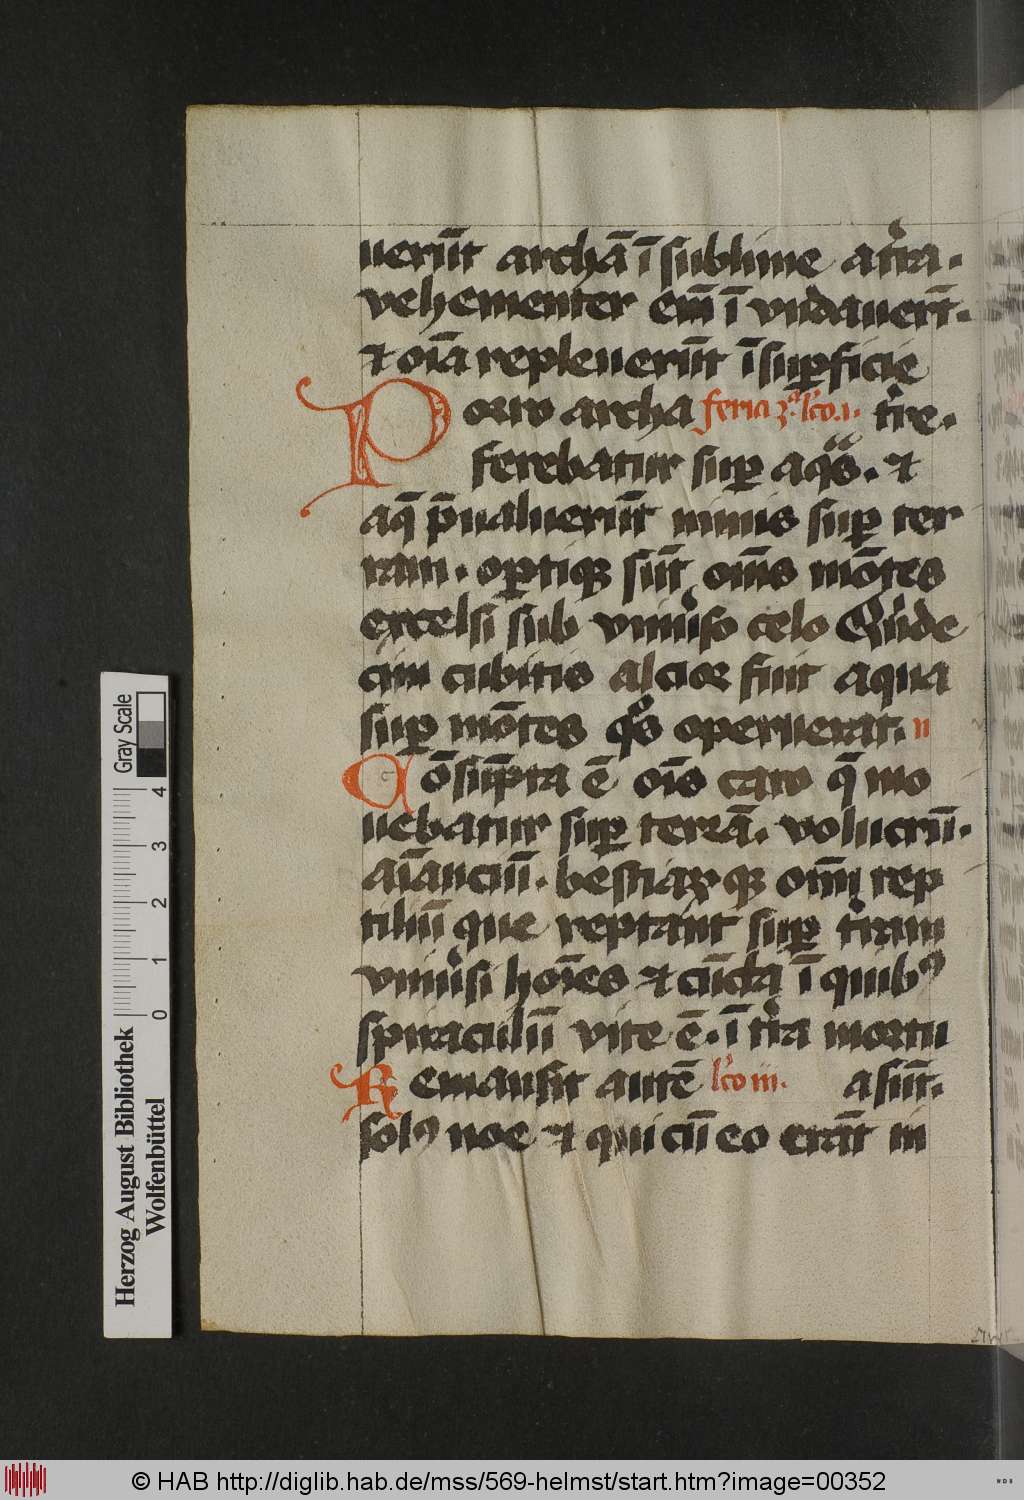 uerūt archā ī sublime a tͥra.
vehementer em̄ ī vndauert̄.
⁊ oīa repleuerūt ī suꝑficie
Porro archa feria 3ᵃ lc̄o .i. tͥre.
ferebatur suꝑ aqͣs. ⁊
aq̄ p̄ualuerūt nimis suꝑ ter
ram. oꝑtiqꝫ sūt om̄s mōtes
excelsi sub vniūso celo Quīde
cim cubitis alcior fuit aqua
suꝑ mōtes qͦs operuerat. ii
Cōsūpta ē oīs caro q̄ mo
uebatur suꝑ terrā. volucrū.
aīanciū. bestiaꝝqꝫ om̄iqꝫ rep
tiliū que reptant suꝑ tͥram
vniūsi hoīes ⁊ cūcta ī quibꝰ
spiraculū vite ē. ī tͥra mortu
Remansit autē lc̄o iii. a sūt.
solꝰ noe ⁊ qui cū eo erāt in
Gray Scale
4
3
2
1
0
Herzog August Bibliothek
Wolfenbüttel
© HAB http://diglib.hab.de/mss/569-helmst/start.htm?image=00352